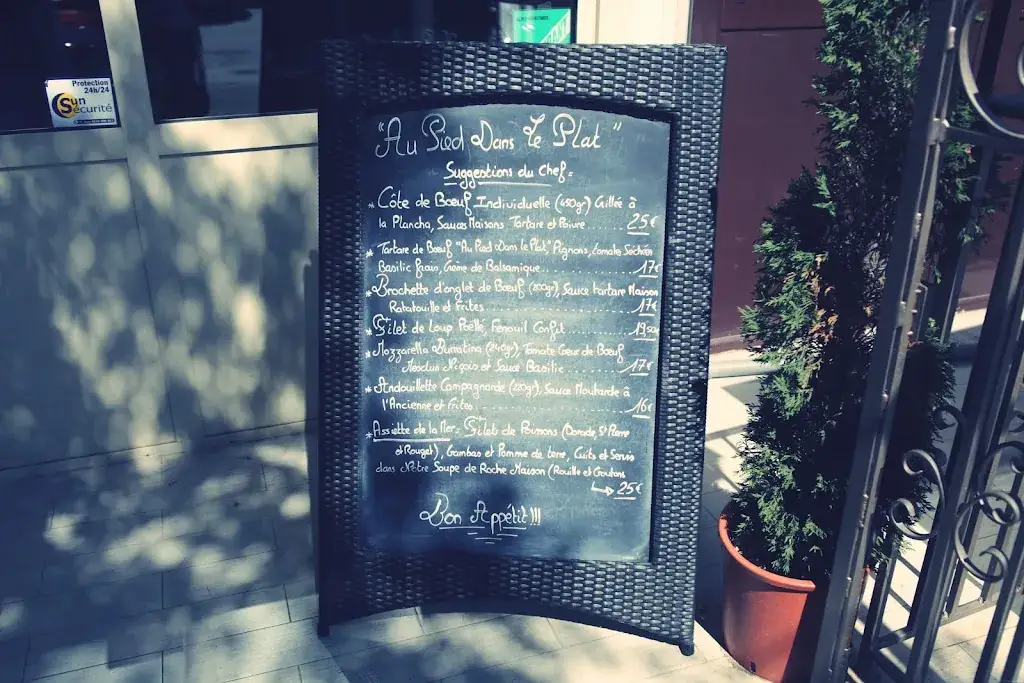 Protection
24h/24
Sun
Sécurité
"Au Pied Dans Le Plat"
Suggestions du Chef =
* Côte de Bœuf Individuelle (450gr) Grillée à
la Plancha, Sauces Maisons Tartare et Poivre ..... 25€
* Tartare de Bœuf "Au Pied Dans le Plat" Pignons, tomate Séchées
Basilic frais, Crème de Balsamique ..... 17€
* Brochette d'onglet de Bœuf (200gr), Sauce tartare Maison
Ratatouille et Frites ..... 17€
* Filet de Loup Poêlé, Fenouil Confit ..... 19,50€
* Mozzarella Burratina (240gr), Tomate Cœur de Bœuf
Mesclun Niçois et Sauce Basilic ..... 17€
* Andouillette Campagnarde (220gr), Sauce Moutarde à
l'Ancienne et Frites ..... 16€
* Assiette de la Mer = Filet de Poissons (Dorade, St Pierre
et Rouget), Gambas et Pomme de terre, Cuits et Servis
dans Notre Soupe de Roche Maison (Rouille et Croutons
25€
Bon Appétit!!!